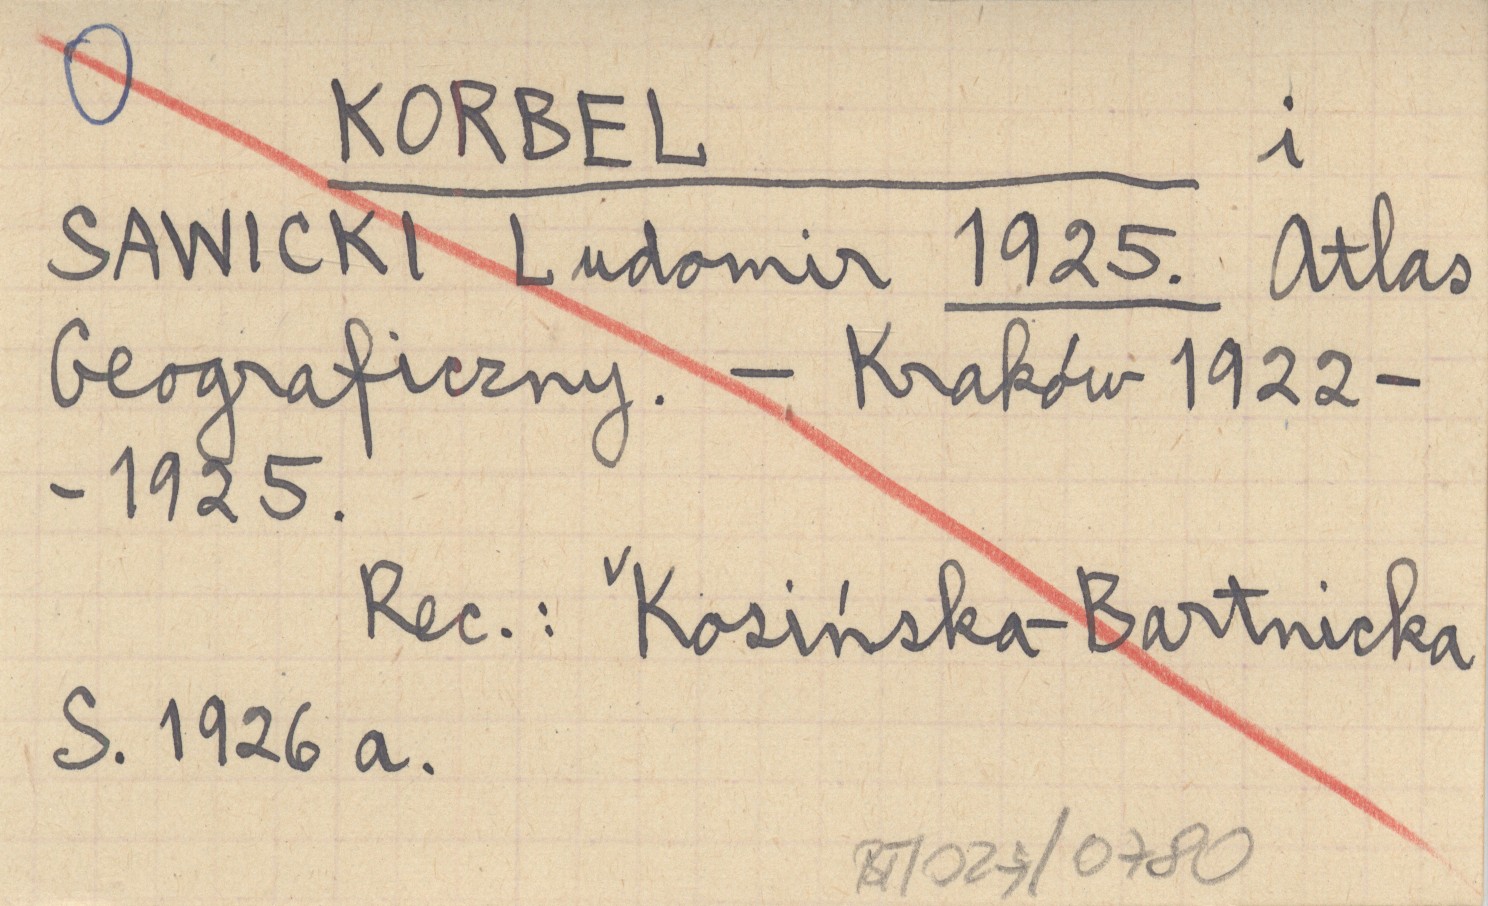 KORBEL i
SAWICKI Ludomir 1925. Atlas
Geograficzny. - Kraków 1922-
-1925.
Rec.: Kosińska-Bartnicka
S. 1926 a.
/0780